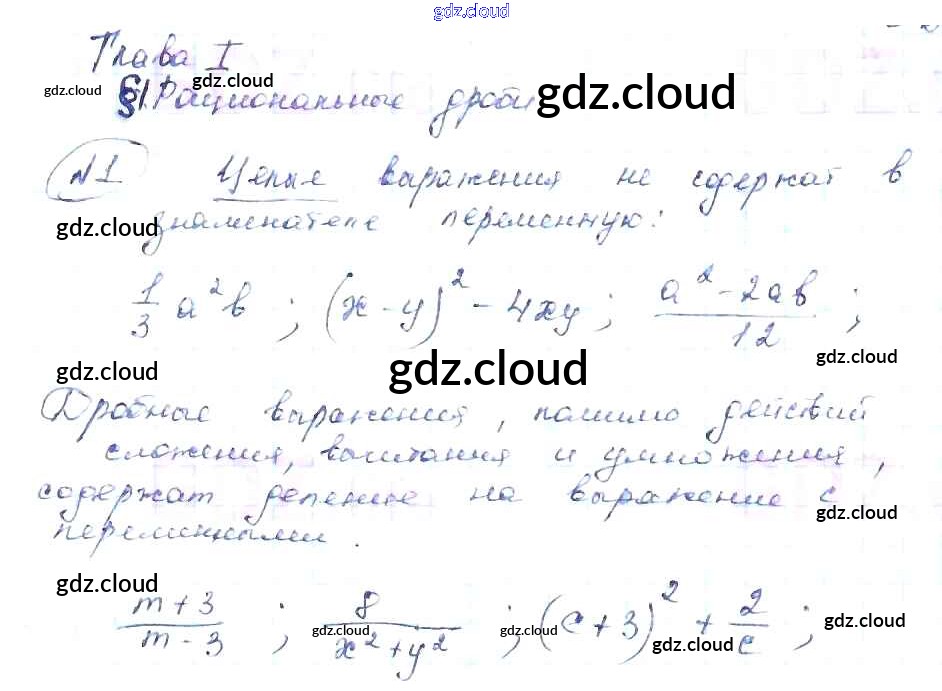 gdz.cloud
Глава I
gdz.cloud gdz.cloud
§1 Рациональные дроби gdz.cloud
№1 Целые выражения не содержат в
gdz.cloud знаменателе переменную:
1/3 a²b ; (x-y)² - 4xy ; (a² - 2ab)/12 ;
gdz.cloud
gdz.cloud gdz.cloud
Дробные выражения, помимо действий
сложения, вычитания и умножения,
содержат деление на выражение с
gdz.cloud
переменными.
gdz.cloud
(m+3)/(m-3) ; 8/(x²+y²) ; (c+3)² + 2/c ;
gdz.cloud gdz.cloud gdz.cloud gdz.cloud